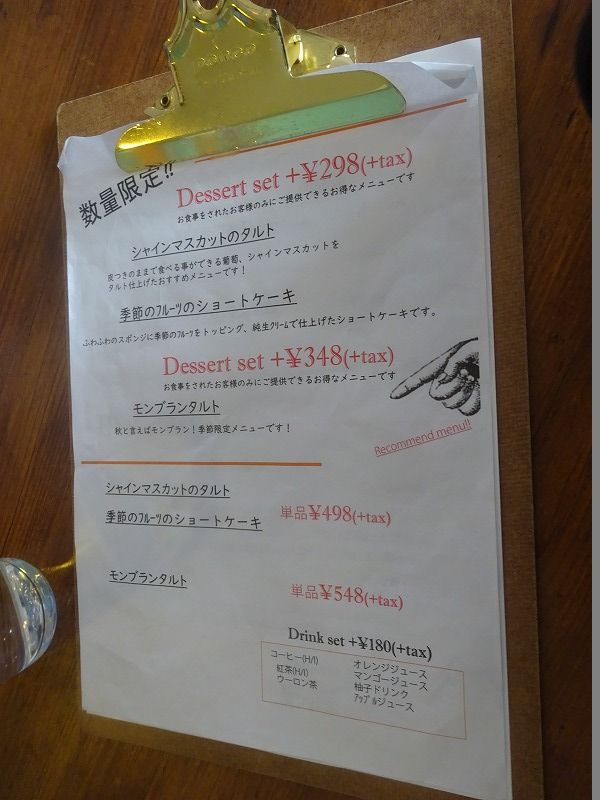 数量限定!!
Dessert set +¥298(+tax)
お食事をされたお客様のみにご提供できるお得なメニューです
シャインマスカットのタルト
皮つきのままで食べる事ができる葡萄、シャインマスカットを
タルト仕上げたおすすめメニューです!
季節のﾌﾙｰﾂのショートケーキ
ふわふわのスポンジに季節のﾌﾙｰﾂをトッピング、純生ｸﾘｰﾑで仕上げたショートケーキです。
Dessert set +¥348(+tax)
お食事をされたお客様のみにご提供できるお得なメニューです
モンブランタルト
秋と言えばモンブラン!季節限定メニューです!
Recommend menu!!
シャインマスカットのタルト
季節のﾌﾙｰﾂのショートケーキ 単品¥498(+tax)
モンブランタルト 単品¥548(+tax)
Drink set +¥180(+tax)
コーヒー(H/I) オレンジジュース
紅茶(H/I) マンゴージュース
ウーロン茶 柚子ドリンク
ｱｯﾌﾟﾙジュース